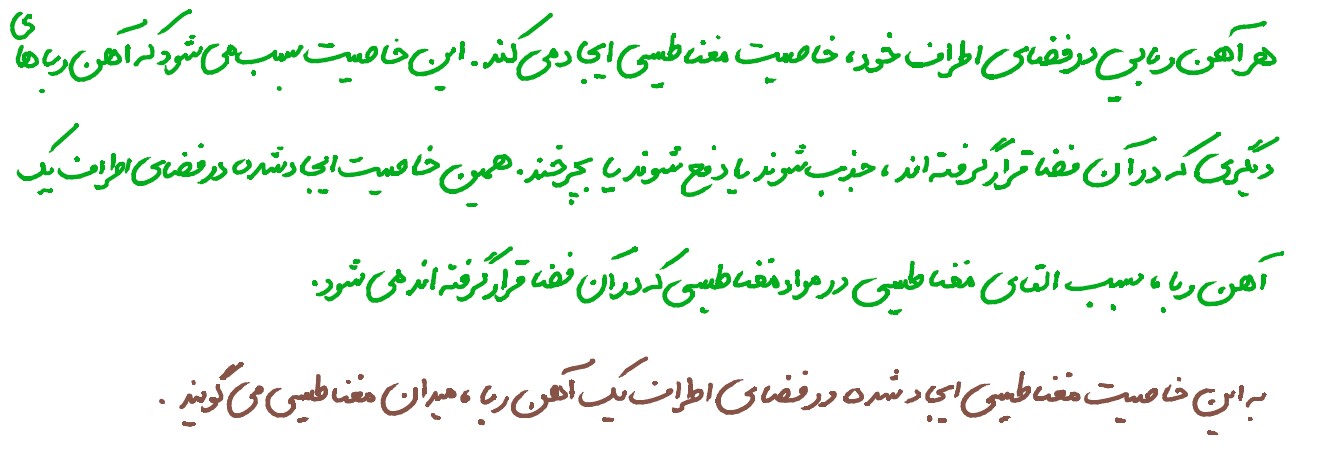 هر آهن ربایی در فضای اطراف خود، خاصیت مغناطیسی ایجاد می کند. این خاصیت سبب می شود که آهن رباهای
دیگری که در آن فضا قرار گرفته اند، جذب شوند یا دفع شوند یا بچرخند. همین خاصیت ایجاد شده در فضای اطراف یک
آهن ربا، سبب القای مغناطیسی در مواد مغناطیسی که در آن فضا قرار گرفته اند می شود.
به این خاصیت مغناطیسی ایجاد شده در فضای اطراف یک آهن ربا، میدان مغناطیسی می گویند.